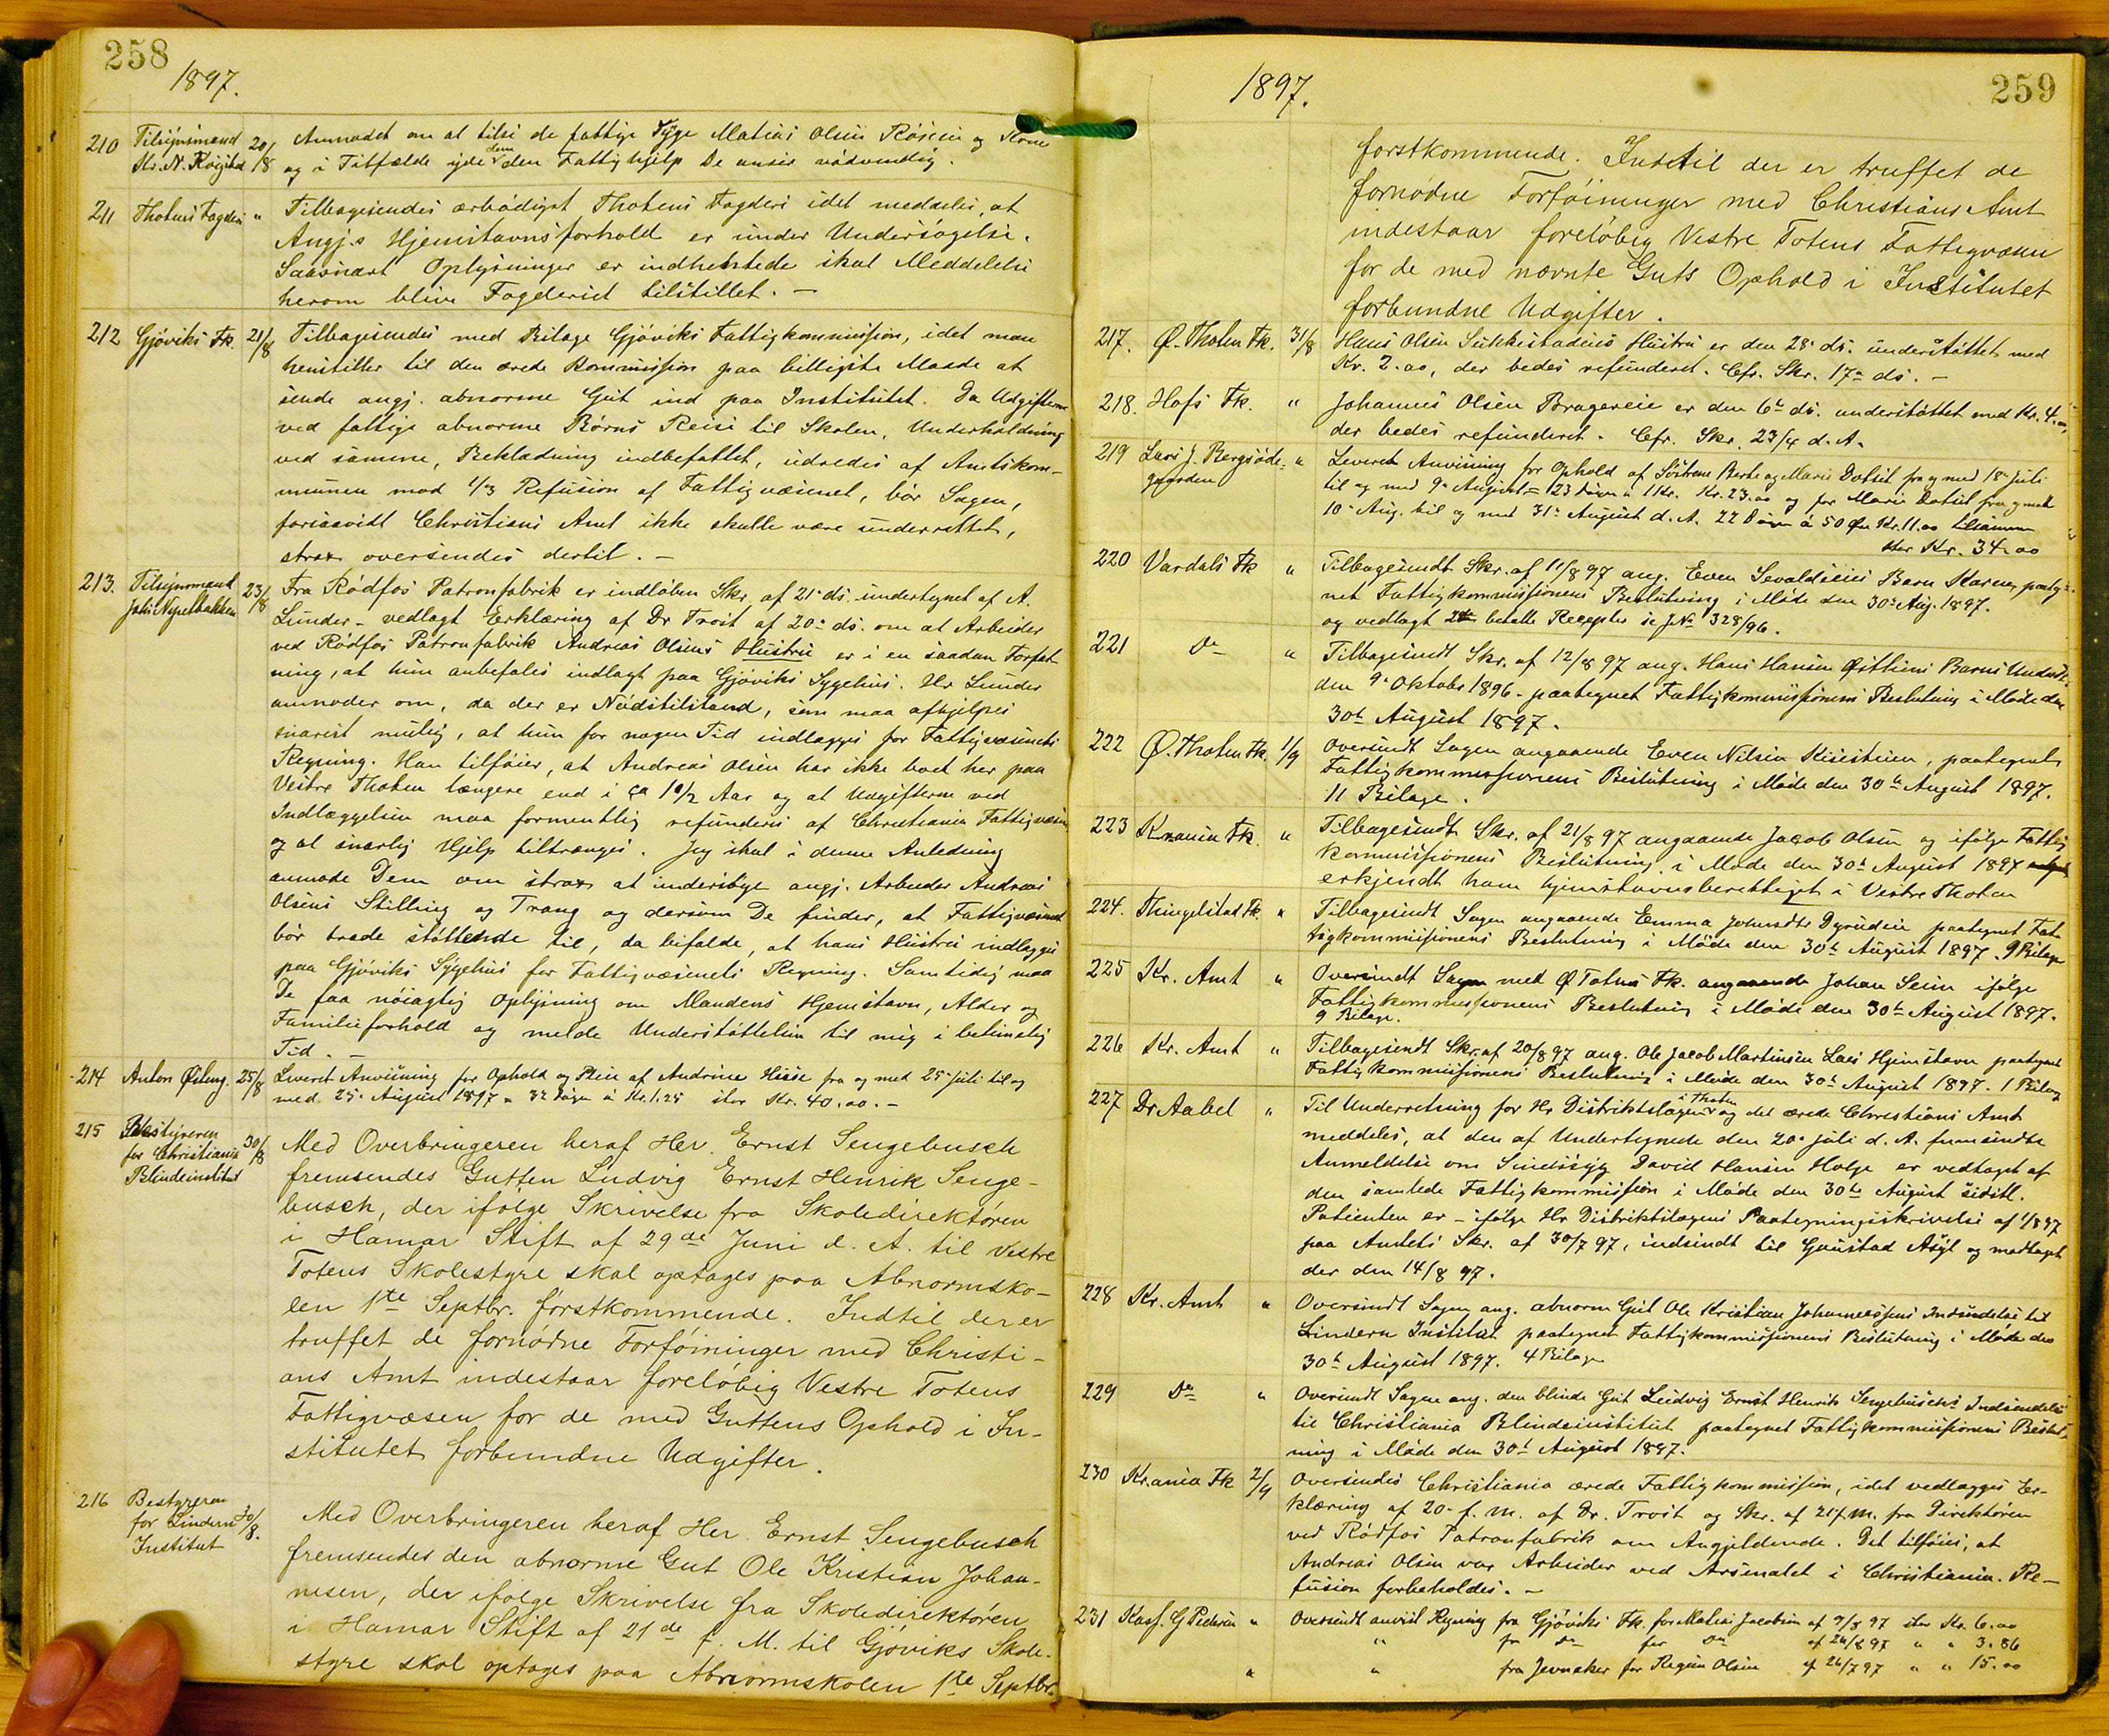 258
1897.
210 Tilsynsmand 20/8 Anmodet om at tilse de fattige Syge Matias Olsen Røisen og Kone
Kr. N. og i Tilfælde yde dem den Fattighjelp De anser nødvendig.
211 Thotens Fogderi " Tilbagesendes ærbødigst Thotens Fogderi idet meddeles, at
Angj.s Hjemstavnsforhold er under Undersøgelse.
Saasnart Oplysninger er indhentede skal Meddelelse
herom blive Fogderiet tilstillet. —
212 Gjøviks Fk. 21/8 Tilbagesendes med Bilage Gjøviks Fattigkommission, idet man
henstiller til den ærede Kommission paa billigste Maade at
sende angj. abnorme Gut ind paa Institutet. Da Udgifterne
ved fattige abnorme Børns Reise til Skolen, Underholdning
ved samme, Beklædning indbefattet, udredes af Amtskom-
munen mod 1/3 Refusion af Fattigvæsenet, bør Sagen,
forsaavidt Christians Amt ikke skulde være underrettet,
strax oversendes dertil. —
213. Tilsynsmand 23/8 Fra Rødfos Patronfabrik er indløben Skr. af 21' ds. undertegnet af A.
Lunder - vedlagt Erklæring af Dr Troit af 20' ds. om at Arbeider
ved Rødfos Patronfabrik Andreas Olsens Hustru er i en saadan Forfat
ning, at hun anbefales indlagt paa Gjøviks Sygehus. Hr Lunder
anmoder om, da der er Nødstilstand, som maa afhjelpes
snarest mulig, at hun for nogen Tid indlægges for Fattigvæsenets
Regning. Han tilføier, at Andreas Olsen har ikke boet her paa
Vestre Thoten længere end i ca 1 1/2 Aar og at Udgifterne ved
Indlæggelsen maa formentlig refunderes af Christiania Fattigvæsen
og at snarlig Hjelp tiltrænges. Jeg skal i denne Anledning
anmode Dem om strax at undersøge angj. Arbeider Andreas
Olsens Stilling og Trang og dersom De finder, at Fattigvæsenet
bør træde støttende til, da bifalde, at hans Hustru indlægges
paa Gjøviks Sygehus for Fattigvæsenets Regning. Samtidig maa
De faa nøiagtig Oplysning om Mandens Hjemstavn, Alder og
Familieforhold og melde Understøttelsen til mig i betimelig
Tid. —
214 Anton Østeng. 25/8 Leveret Anvisning for Ophold og Pleie af Andrine Hisse fra og med 25' Juli til og
med 25' August 1897 = 32 Døgn à Kr. 1.25 stor Kr. 40.00. —
215 Bestyreren 30/8 Med Overbringeren heraf Her. Ernst Sengebusch
for Christiania fremsendes Gutten Ludvig Ernst Henrik Senge-
Blindeinstitut busch, der ifølge Skrivelse fra Skoledirektøren
i Hamar Stift af 29de Juni d. A. til Vestre
Totens Skolestyre skal optages paa Abnormsko-
len 1te Septbr. førstkommende. Indtil der er
truffet de fornødne Forføininger med Christi-
ans Amt indestaar foreløbig Vestre Totens
Fattigvæsen for de med Guttens Ophold i In-
stitutet forbundne Udgifter.
216 Bestyreren 30/8. Med Overbringeren heraf Her. Ernst Sengebusch
for Lindern fremsendes den abnorme Gut Ole Kristian Johan-
Institut nesen, der ifølge Skrivelse fra Skoledirektøren
i Hamar Stift af 21de f. M. til Gjøviks Skole-
styre skal optages paa Abnormskolen 1te Septbr.
259
1897.
førstkommende. Indtil der er truffet de
fornødne Forføininger med Christians Amt
indestaar foreløbig Vestre Totens Fattigvæsen
for de med nævnte Guts Ophold i Institutet
forbundne Udgifter.
217. Ø. Thoten Fk. 31/8 Hans Olsen Sukkestadeies Hustru er den 28' ds. understøttet med
Kr. 2.00, der bedes refunderet. Cfr. Skr. 17' ds. —
218. Hofs Fk. " Johannes Olsen Bragereie er den 6te ds. understøttet med Kr. 4.00,
der bedes refunderet. Cfr. Skr. 23/4 d. A.
219 Lars J. Bergsøde- " Leveret Anvisning for Ophold af Søstrene Berte og Marie Dotset fra og med 18' Juli
gaarden til og med 9' August = 23 Døgn à 1 Kr. Kr. 23.00 og for Marie Dotset fra og med
10' Aug. til og med 31' August d. A. 22 Døgn à 50 Øre Kr. 11.00 tilsammen
stor Kr. 34.00
220 Vardals Fk " Tilbagesendt Skr. af 11/8 97 ang. Even Sevaldseies Barn Karen, paateg-
net Fattigkommissionens Beslutning i Møde den 30' Aug. 1897.
og vedlagt betalte Recepter se J.No 328/96.
221 Do " Tilbagesendt Skr. af 12/8 97 ang. Hans Hansen Østliens Barns Underst.
den 9' Oktober 1896 - paategnet Fattigkommissionens Beslutning i Møde den
30te August 1897.
222 Ø. Thoten Fk. 1/9 Oversendt Sagen angaaende Even Nilsen Kisesteien, paategnet
Fattigkommissionens Beslutning i Møde den 30te August 1897.
11 Bilage.
223 Krania Fk. " Tilbagesendt Skr. af 21/8 97 angaaende Jacob Olsen og ifølge Fattig
kommissionens Beslutning i Møde den 30te August 1897
erkjendt ham hjemstavnsberettiget i Vestre Thoten
224. Thingelstad Fk. " Tilbagesendt Sagen angaaende Emma Johnsdtr Dyrudeie paategnet Fat-
tigkommissionens Beslutning i Møde den 30te August 1897. 9 Bilage
225 Kr. Amt " Oversendt Sagen med Ø Totens Fk. angaaende Johan Seim ifølge
Fattigkommissionens Beslutning i Møde den 30te August 1897.
9 Bilage.
226 Kr. Amt " Tilbagesendt Skr. af 20/8 97 ang. Ole Jacob Martinsen Laes Hjemstavn paategnet
Fattigkommissionens Beslutning i Møde den 30te August 1897. 1 Bilag
227 Dr Aabel " Til Underretning for Hr Distriktslægen i Thoten og det ærede Christians Amt
meddeles, at den af Undertegnede den 20' Juli d. A. fremsendte
Anmeldelse om Sindssyg David Hansen Holje er vedtaget af
den samlede Fattigkommission i Møde den 30te August sidstl.
Patienten er - ifølge Hr Distriktslægens Paategningsskrivelse af 1/8 97
paa Amtets Skr. af 30/7 97, indsendt til Gaustad Asyl og modtaget
der den 14/8 97.
228 Kr. Amt " Oversendt Sagen ang. abnorm Gut Ole Kristian Johannessens Indsendelse til
Lindern Institut paategnet Fattigkommissionens Beslutning i Møde den
30te August 1897. 4 Bilage
229 Do " Oversendt Sagen ang. den blinde Gut Ludvig Ernst Henrik Sengebuschs Indsendelse
til Christiania Blindeinstitut paategnet Fattigkommissionens Beslut-
ning i Møde den 30te August 1897.
230 Kr.ania Fk 2/9 Oversendes Christiania ærede Fattigkommission, idet vedlægges Er-
klæring af 20' f. m. af Dr. Troit og Skr. af 21' f.m. fra Direktøren
ved Rødfos Patronfabrik om Angjeldende. Det tilføies, at
Andreas Olsen var Arbeider ved Arsenalet i Christiania. Re-
fusion forbeholdes. —
231 Kass. G Pedersen " Oversendt anvist Regning fra Gjøviks Fk. for Matias Jacobsen af 9/8 97 stor Kr. 6.00
" fr do for do af 26/8 97 " " 3.86
" " fra Jevnaker for Regine Olsen af 26/7 97 " " 15.00